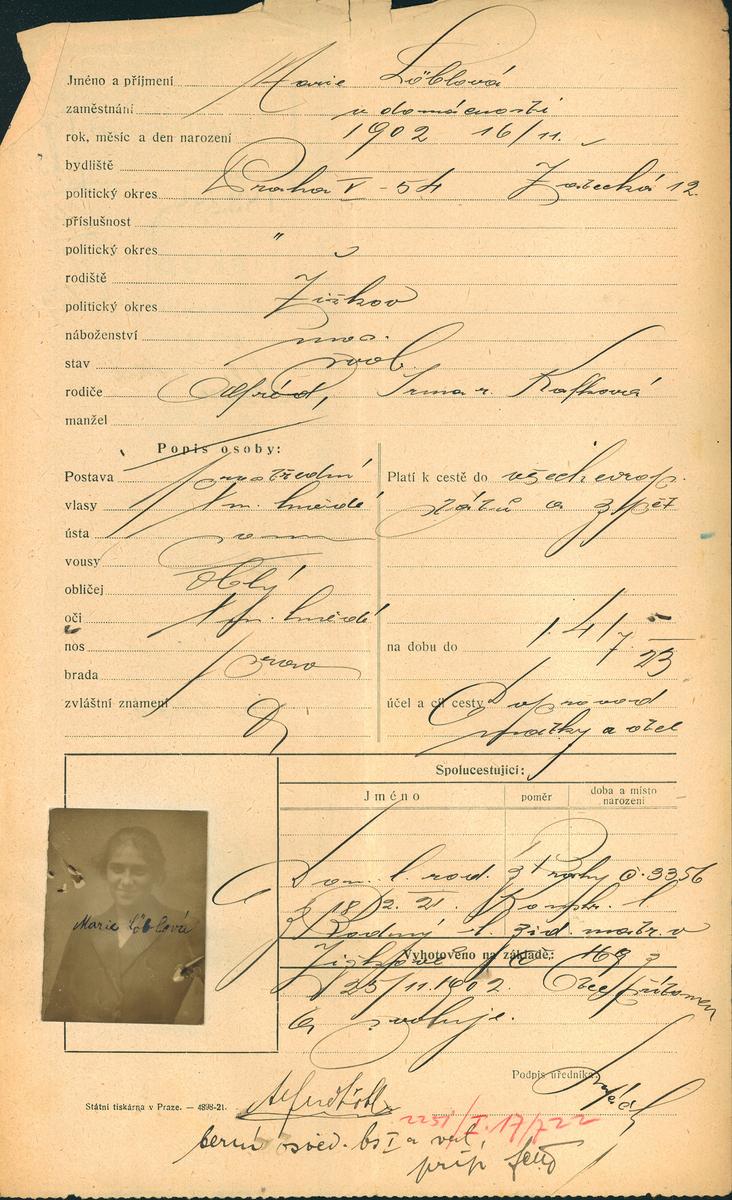 Jméno a příjmení Marie Löblová
zaměstnání v domácnosti
rok, měsíc a den narození 1902 16/11.
bydliště
politický okres Praha V - 54 Žatecká 12
příslušnost
politický okres " "
rodiště
politický okres Žižkov
náboženství mos.
stav svob.
rodiče Alfréd, Irma r. Kafková
manžel
Popis osoby:
Postava prostřední
vlasy tm. hnědé
ústa
vousy
obličej oblý
oči tm. hnědé
nos
brada rovn
zvláštní znamení
Platí k cestě do všech evrop.
států a zpět
na dobu do 1.4/7 23
účel a cíl cesty Doprovod
matky a otce
Spolucestující:
Jméno poměr doba a místo narození
Dom. l. rod. z Prahy č. 3356
z 18/2. 21.
Rodný l. žid. matr. v
Vyhotoveno na základě:
Žižkově 169 z
25/11.1902. Otec přítomen
a svoluje.
Podpis úředníka:
Marie Löblová
Státní tiskárna v Praze. — 4898-21.
2251/I. 17/7 22
berní osvěd. bs I a